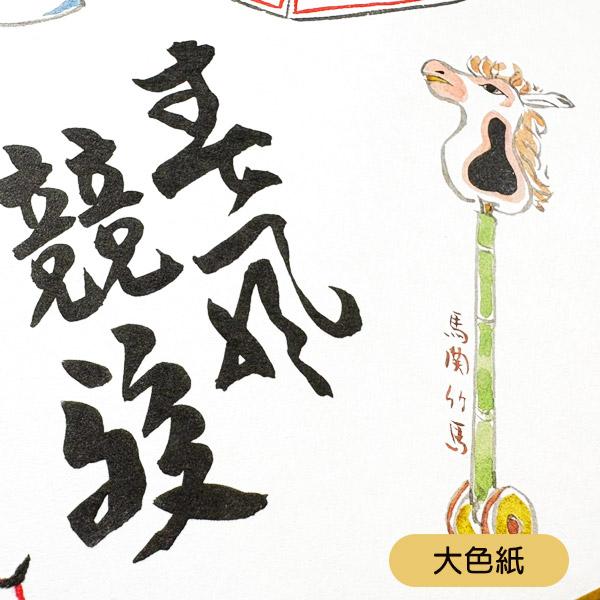 春風
競詩
馬関竹馬
大色紙